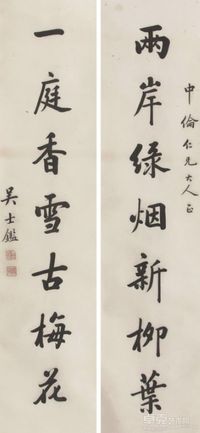 中倫仁兄大人正
兩岸綠烟新柳葉
一庭香雪古梅花
吳士鑑